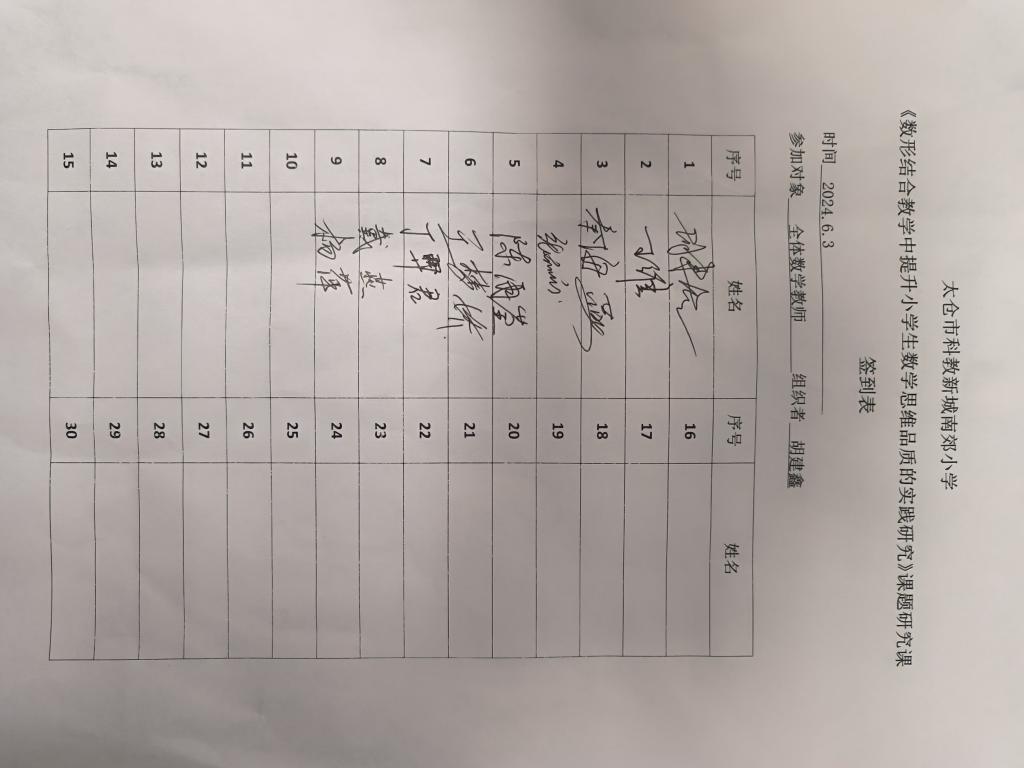 太仓市科教新城南郊小学
《数形结合教学中提升小学生数学思维品质的实践研究》课题研究课
签到表
时间 2024.6.3
参加对象 全体数学教师 组织者 胡建鑫
序号 姓名 序号 姓名
1 16
2 丁维 17
3 18
4 19
5 陈雨莹 20
6 21
7 丁群君 22
8 戴燕 23
9 杨萍 24
10 25
11 26
12 27
13 28
14 29
15 30